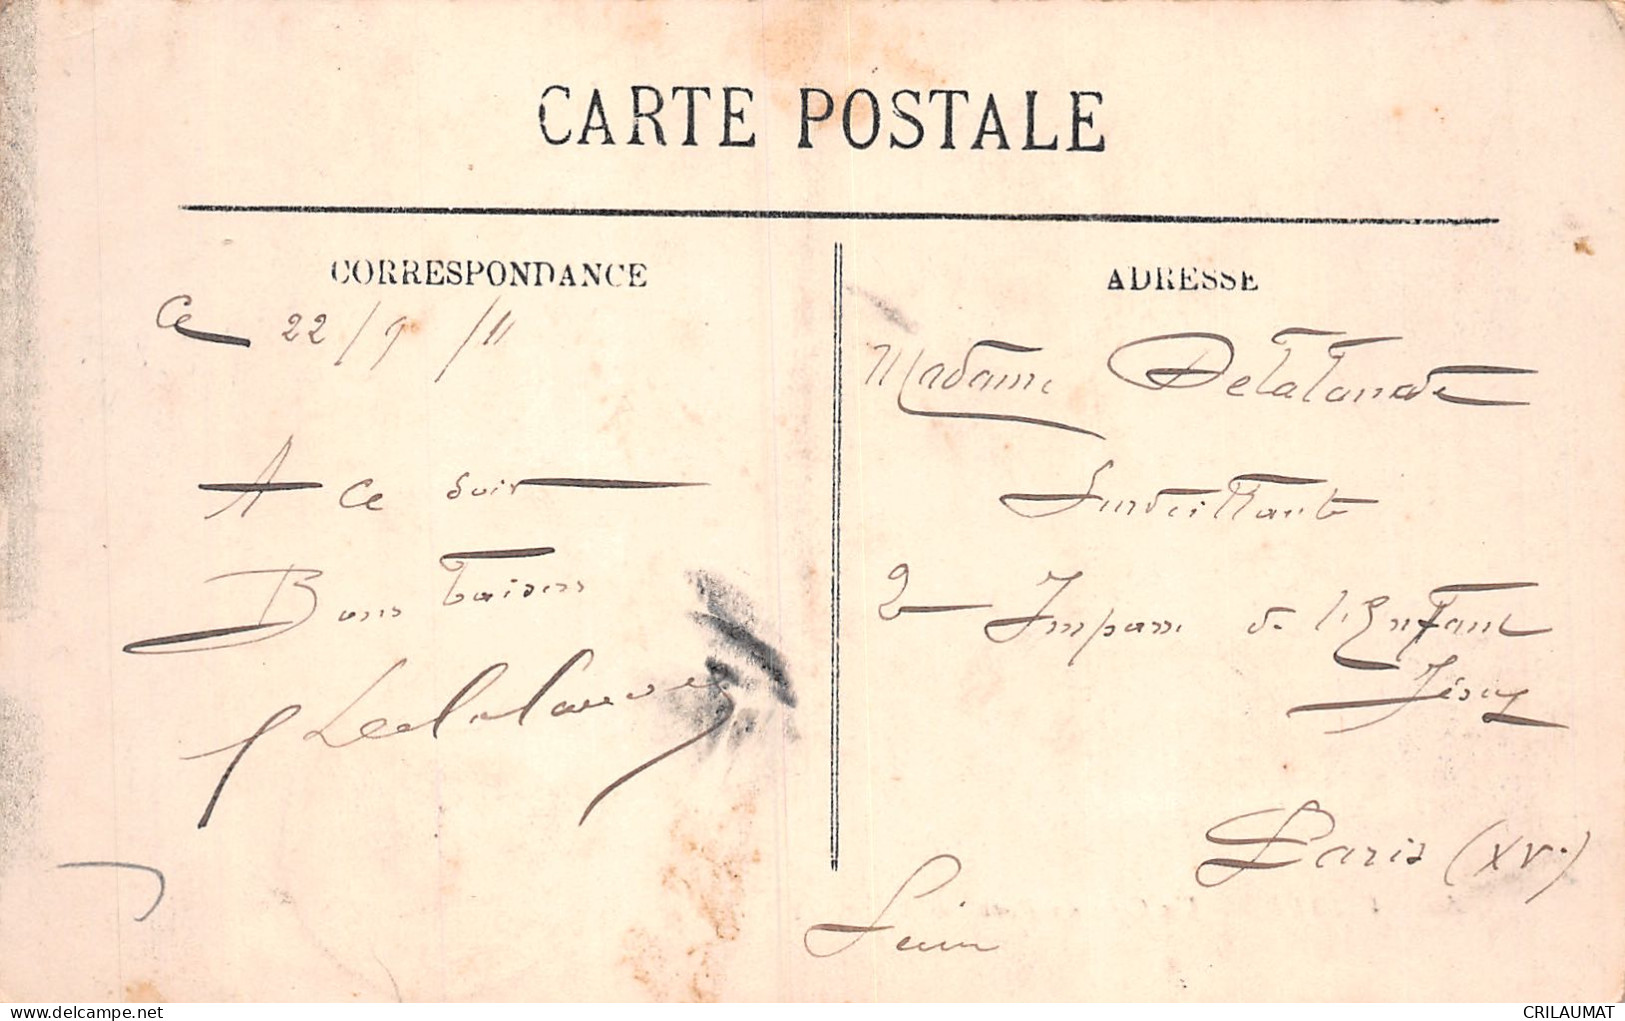 CARTE POSTALE
CORRESPONDANCE
Ce 22/9/11
A ce soir
Bons baisers
ADRESSE
Madame Delalande
Surveillante
2 Impasse de l'Enfant
Jésus
Paris (XVe)
Seine
delcampe.net
CRILAUMAT